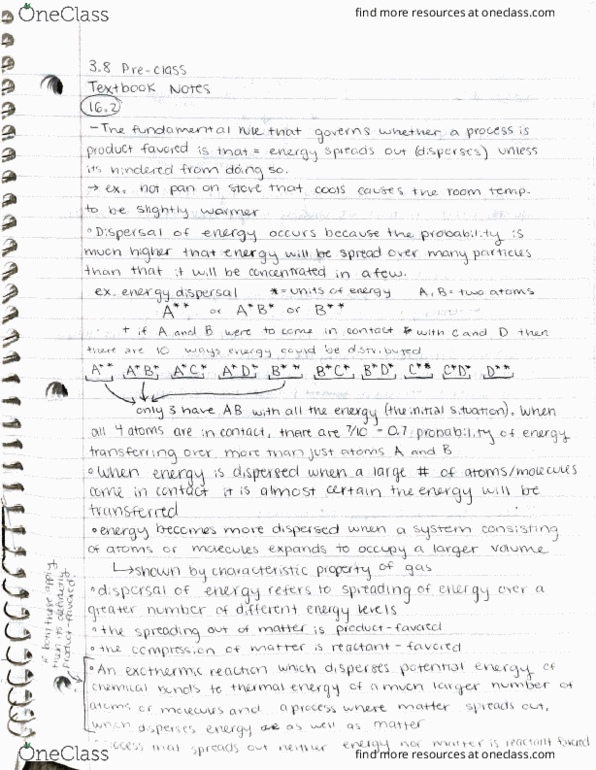 OneClass
find more resources at oneclass.com
3.8 Pre-class
Textbook Notes
16.2
- The fundamental rule that governs whether a process is
product favored is that = energy spreads out (disperses) unless
its hindered from doing so.
→ ex. hot pan on stove that cools causes the room temp.
to be slightly warmer
° Dispersal of energy occurs because the probability is
much higher that energy will be spread over many particles
than that it will be concentrated in a few.
ex. energy dispersal * = units of energy A, B = two atoms
A** or A*B* or B**
+ if A and B were to come in contact with C and D then
there are 10 ways energy could be distributed
A** A*B* A*C* A*D* B** B*C* B*D* C** C*D* D**
only 3 have AB with all the energy (the initial situation). When
all 4 atoms are in contact, there are 7/10 - 0.7 probability of energy
transferring over more than just atoms A and B
° When energy is dispersed when a large # of atoms/molecules
come in contact it is almost certain the energy will be
transferred
° energy becomes more dispersed when a system consisting
of atoms or molecules expands to occupy a larger volume
↳ shown by characteristic property of gas
° dispersal of energy refers to spreading of energy over a
greater number of different energy levels
° the spreading out of matter is product-favored
° the compression of matter is reactant-favored
° An exothermic reaction which disperses potential energy of
chemical bonds to thermal energy of a much larger number of
atoms or molecules and a process where matter spreads out,
which disperses energy as well as matter
process that spreads out neither energy nor matter is reactant favored
* both these apply
then its definitely
product favored!
OneClass
find more resources at oneclass.com